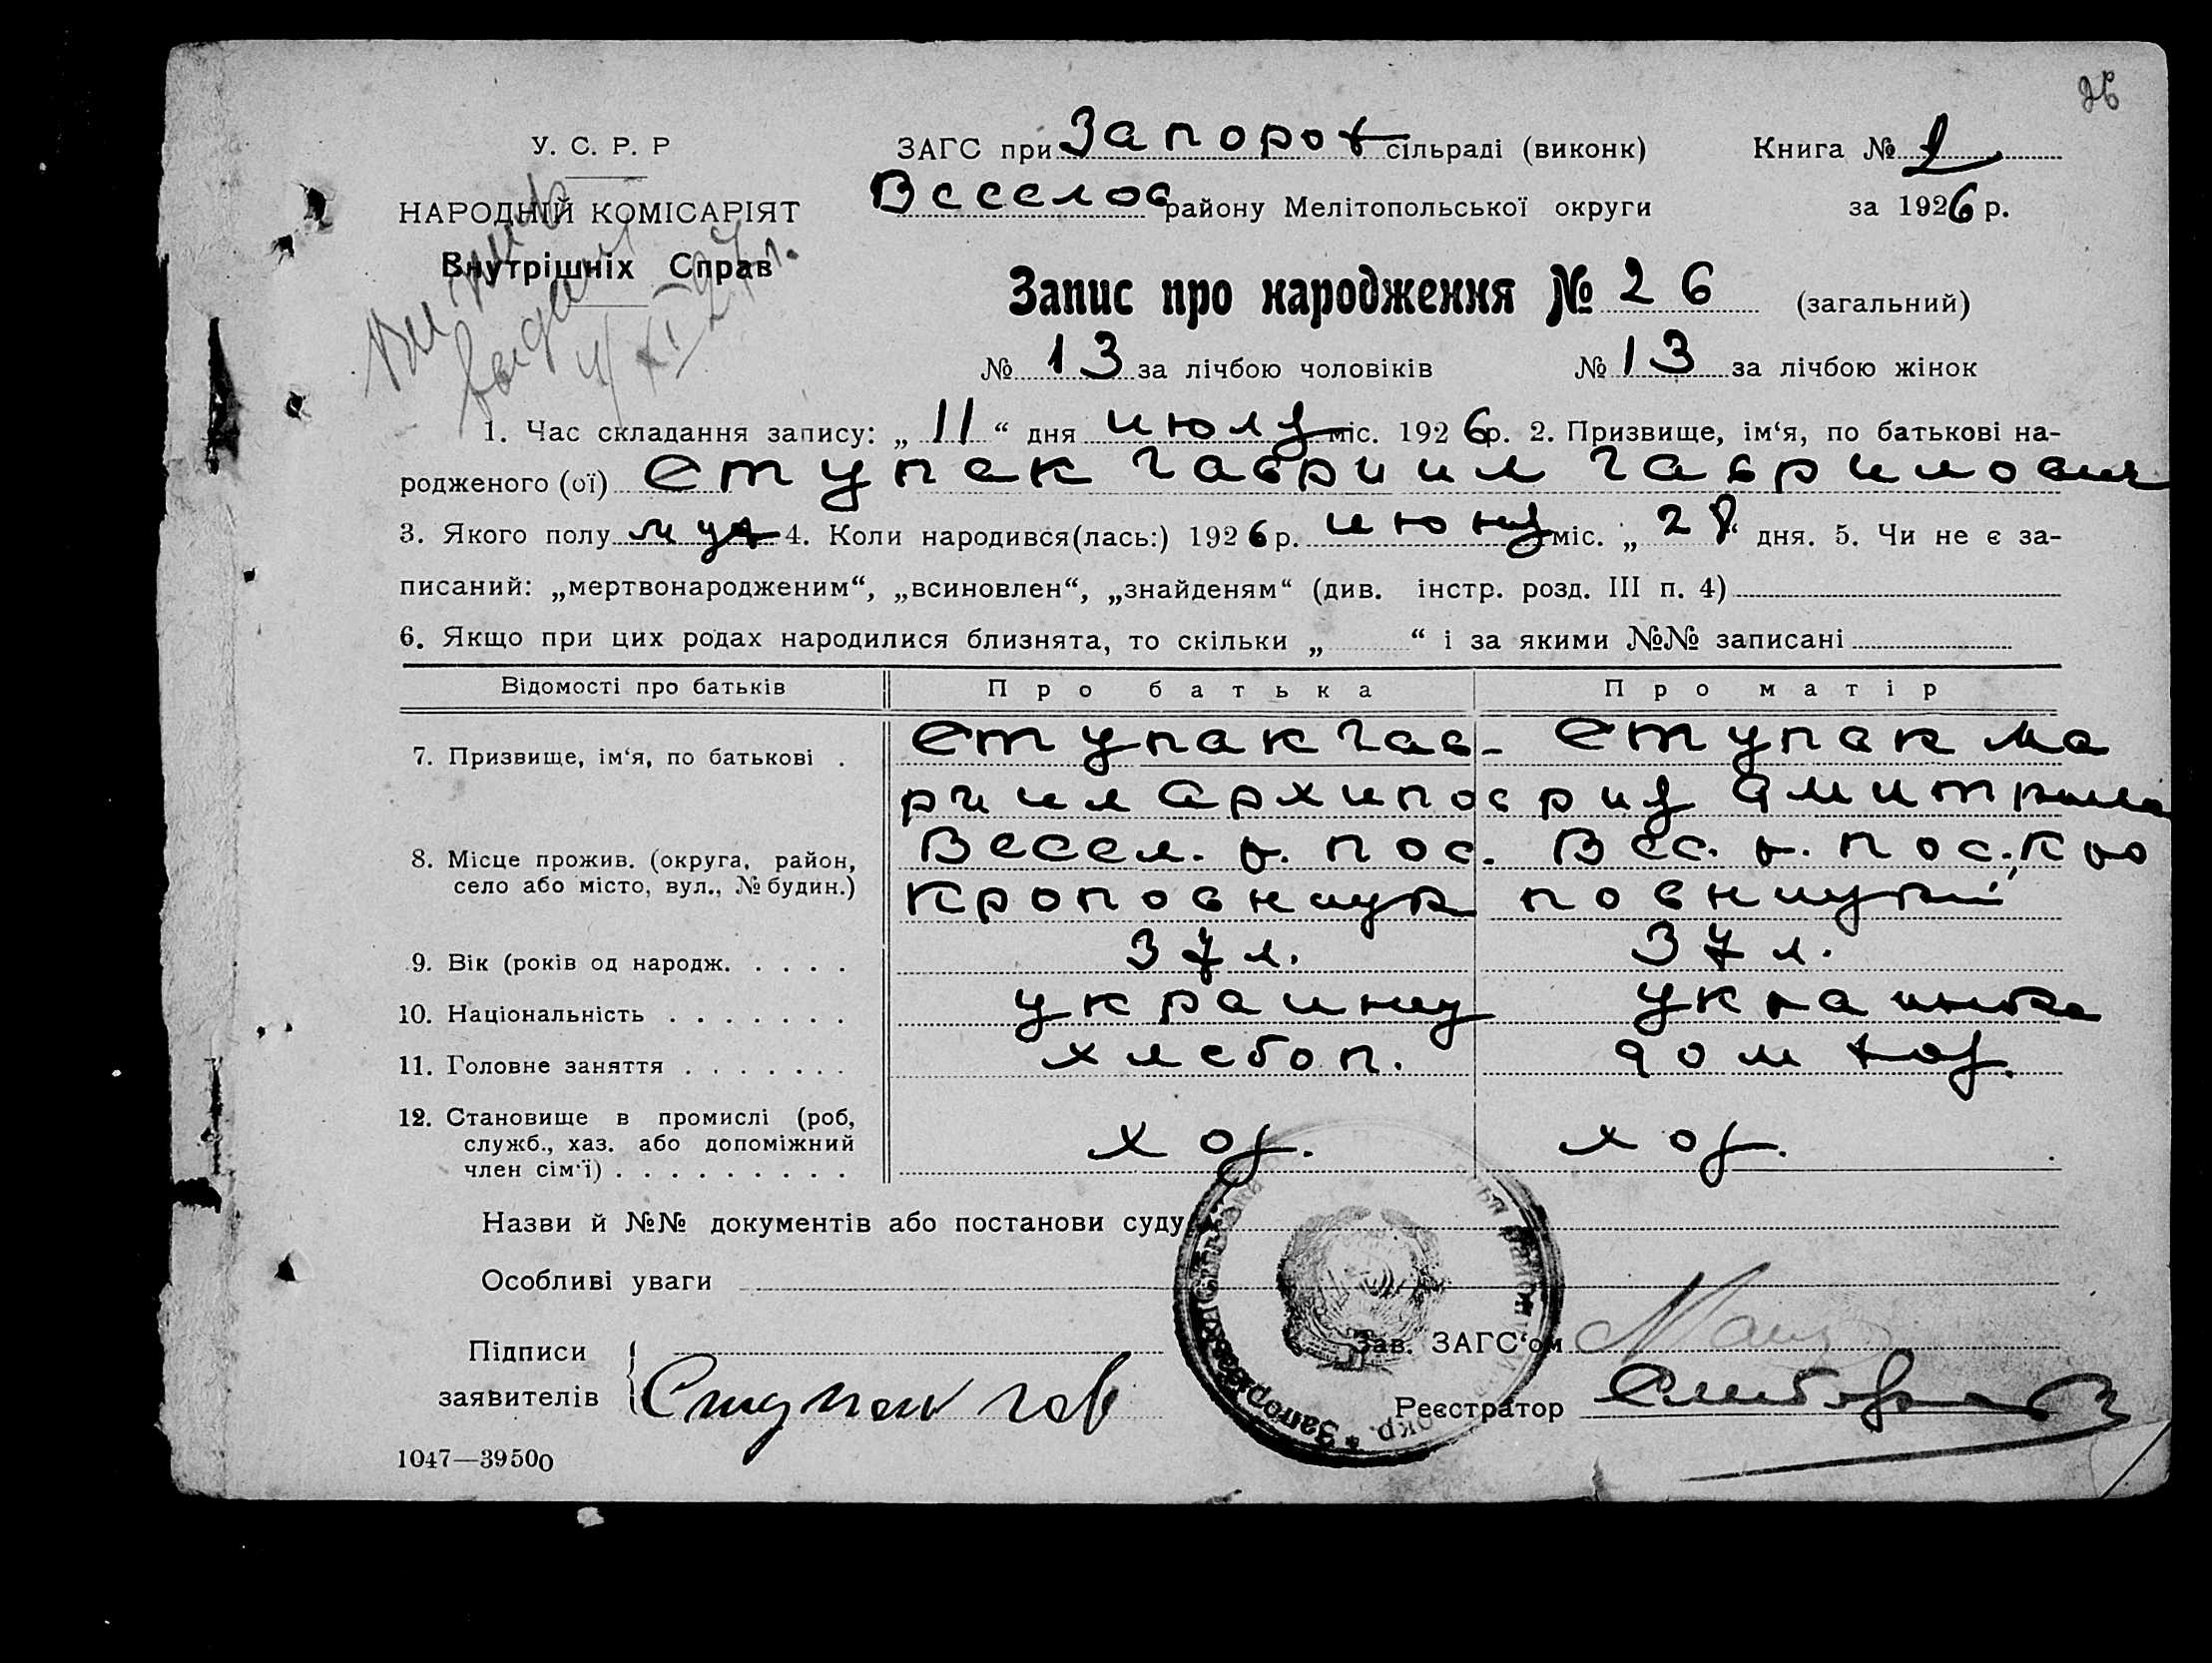 26
У. С. Р. Р
НАРОДНІЙ КОМІСАРІЯТ
Внутрішніх Справ
ЗАГС при Запорож сільраді (виконк) Книга № 1
Веселов району Мелітопольської округи за 1926 р.
Запис про народження № 26 (загальний)
№ 13 за лічбою чоловіків № 13 за лічбою жінок
1. Час складання запису: „ 11 “ дня июля міс. 1926 р. 2. Призвище, ім‘я, по батькові на-
родженого (ої) Ступак Гавриил Гаврилович
3. Якого полу муж 4. Коли народився(лась:) 1926 р. июня міс. „ 28 “ дня. 5. Чи не є за-
писаний: „мертвонародженим“, „всиновлен“, „знайденям“ (див. інстр. розд. III п. 4)
6. Якщо при цих родах народилися близнята, то скільки „ “ і за якими №№ записані
Відомості про батьків Про батька Про матір
7. Призвище, ім‘я, по батькові . Ступак Гав- Ступак Ма
риил Архипов рия Дмитриев
8. Місце прожив. (округа, район, Весел. р. пос. Вес. р. пос. Кро
село або місто, вул., № будин.) Кроповницк повницкий
9. Вік (років од народж. . . . . 37 л. 37 л.
10. Національність . . . . . . . украинец украинка
11. Головне заняття . . . . . . . хлебоп. дом хоз.
12. Становище в промислі (роб,
служб., хаз. або допоміжний хоз. хоз.
член сім‘ї) . . . . . . . . .
Назви й №№ документів або постанови суду
Особливі уваги
Підписи Зав. ЗАГС‘ом
заявителів Ступак Гав Реєстратор
1047—39500